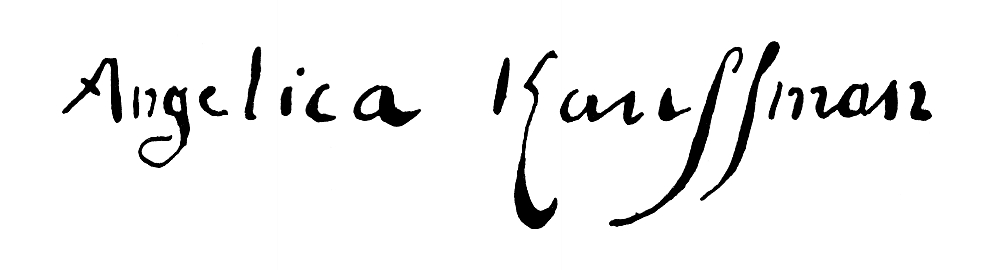 Angelica Kauffman